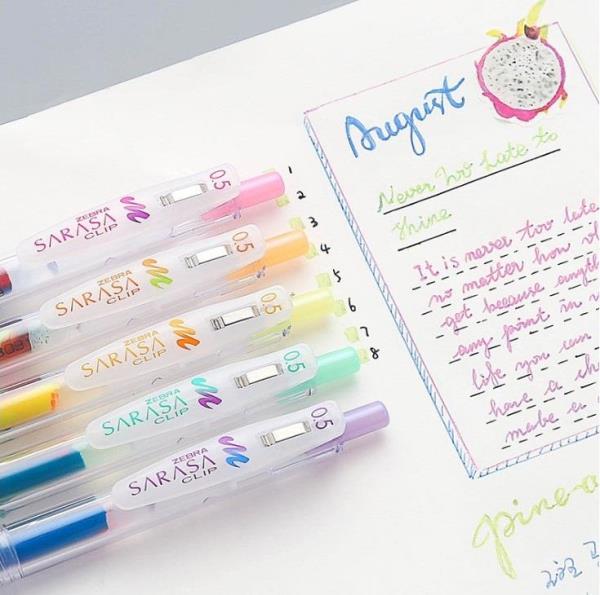 ZEBRA
SARASA
CLIP
0.5
ZEBRA
SARASA
CLIP
0.5
ZEBRA
SARASA
CLIP
0.5
ZEBRA
SARASA
CLIP
0.5
ZEBRA
SARASA
CLIP
0.5
1
2
3
4
5
6
7
8
August
Never too late to
shine
It is never too late
no matter how
get because
any point in
life you can
have a
pine-a